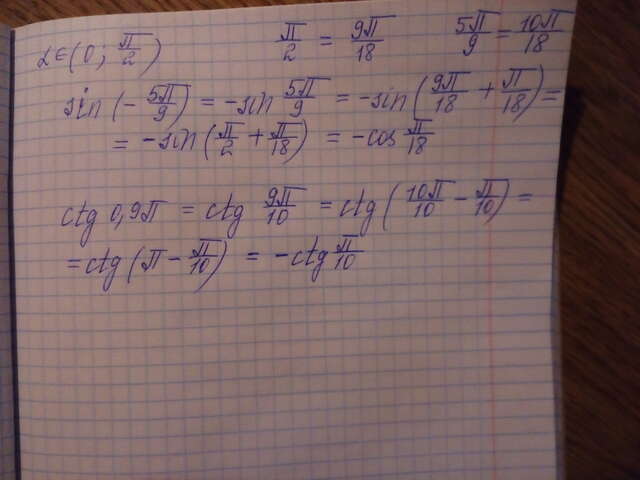 α∈(0; π/2) π/2 = 9π/18 5π/9 = 10π/18
sin(-5π/9) = -sin 5π/9 = -sin(9π/18 + π/18) =
= -sin(π/2 + π/18) = -cos π/18
ctg 0,9π = ctg 9π/10 = ctg(10π/10 - π/10) =
= ctg(π - π/10) = -ctg π/10